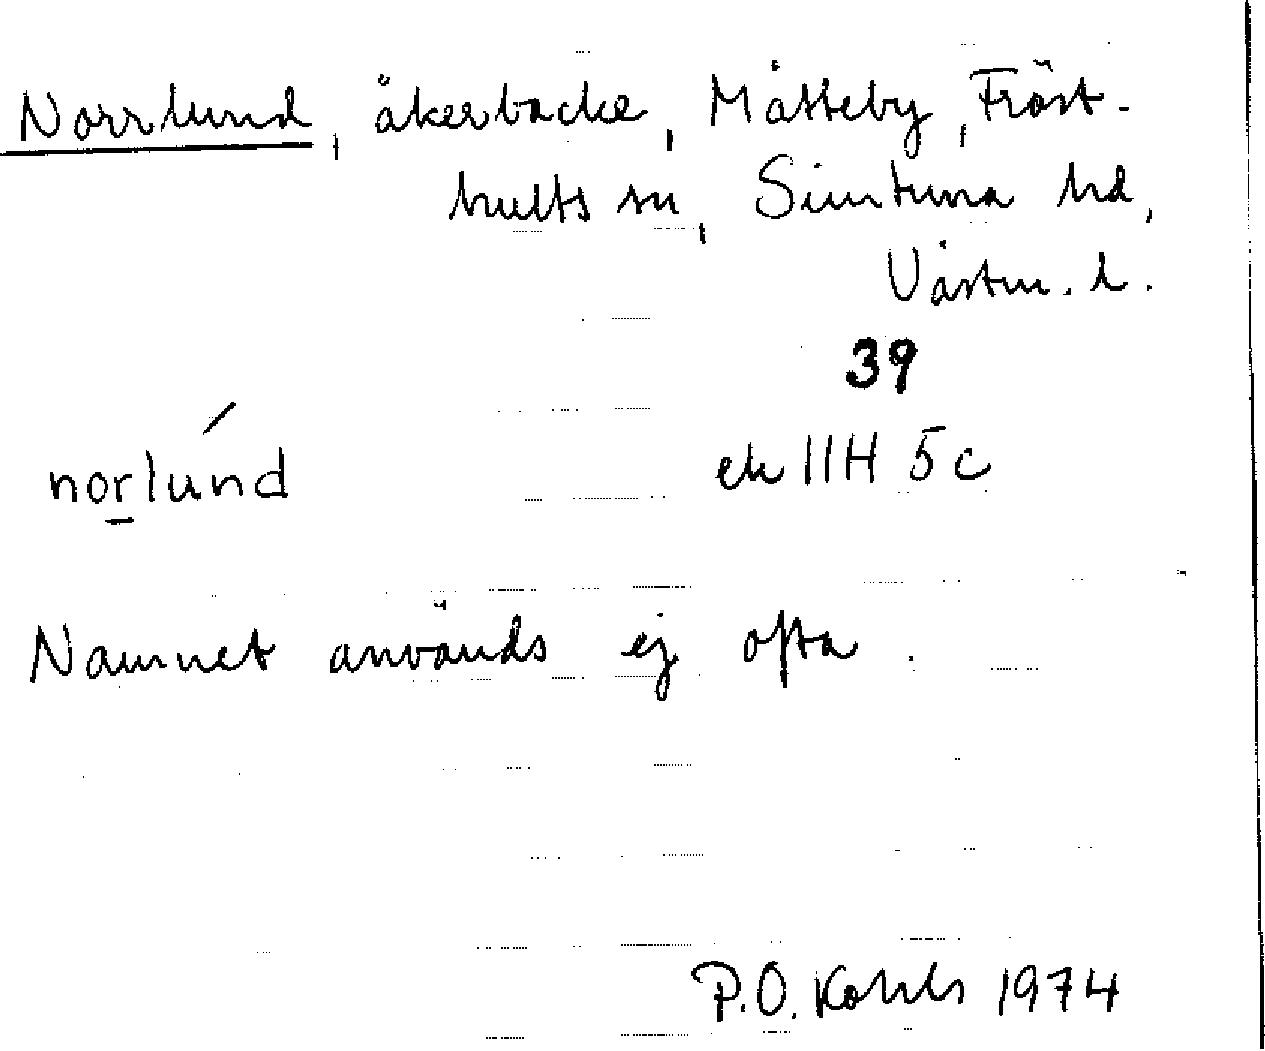 Norrlund, åkerbacke, Måtteby, Fröst-
hults sn, Simtuna hd,
Västm. l.
39
norlund
ek 11H 5c
Namnet används ej ofta.
P.O. 1974